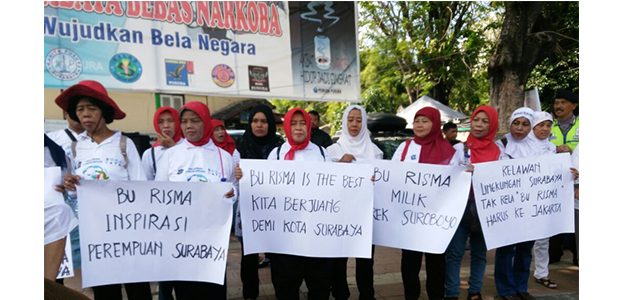 BEBAS NARKOBA
Wujudkan Bela Negara
BU RISMA
INSPIRASI
PEREMPUAN SURABAYA
BU RISMA IS THE BEST
KITA BERJUANG
DEMI KOTA SURABAYA
BU RISMA
MILIK
REK SUROBOYO
RELAWAN
LINGKUNGAN SURABAYA
TAK RELA" BU RISMA
HARUS KE JAKARTA